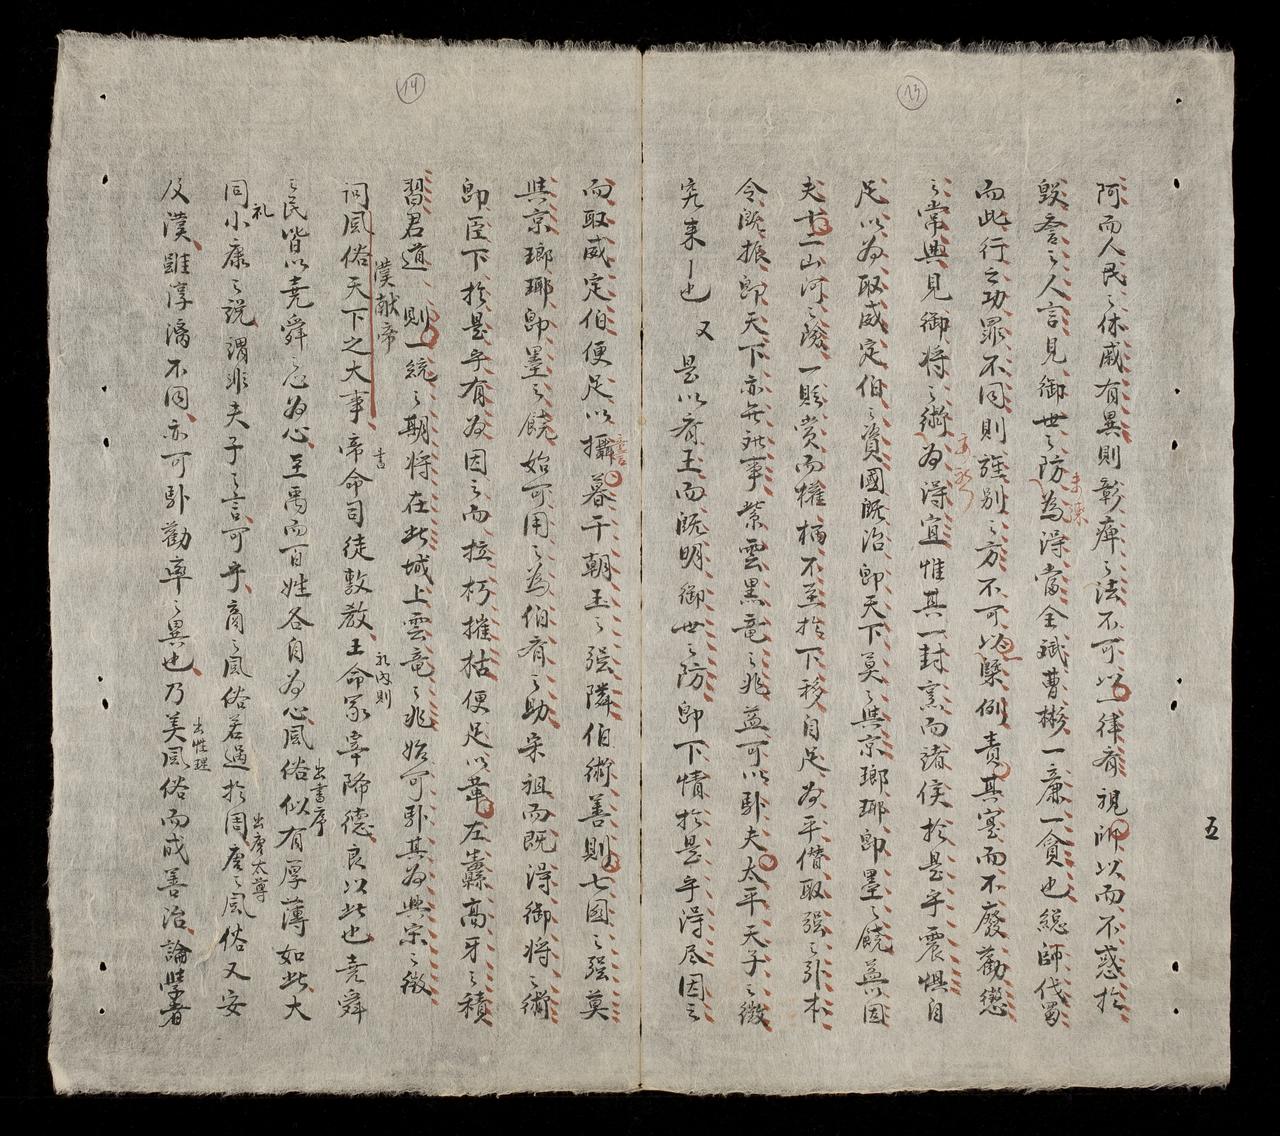 13
五
阿而人民之休戚有異則彰瘅之法不可以一律齐視師以而不惑於
毀誉之人言見御世之防為得當全斌曹彬一廉一貪也総師伐蜀
未深
而此行之功罪不同則旌别之方不可以槩例責其寔而不廢勸懲
之常典見御将之術為得宜惟其一封烹而诸侯於是乎震惧自
足以為取威定伯之資國既治即天下莫之與京瑯琊即墨之饒並以因
夫十二山河之險一賂赏而權柄不至於下移自足為平僣取强之引本
令既振即天下亦無难事紫雲黑竜之兆益可以卧夫太平天子之徵
究来也 又 是以齐王而既明御世之防即下情於是乎得尽因之
14
而取威定伯便足以攝暮干朝王之强隣伯術善則七國之强莫
與京瑯琊即墨之饒始可用之為伯齐之助宋祖而既得御将之術
即臣下於是乎有為因之而拉朽摧枯便足以華左纛高牙之積
習君道一則一統之期将在此城上雲竜之兆始可卧其為興宋之徵
漢献帝
问風俗天下之大事帝命司徒敦教王命冢宰降德良以此也堯舜
書
礼内則
之民皆以堯舜之心為心至禹而百姓各自為心風俗似有厚薄如此大
出書序
同小康之説謂非夫子之言可乎商之風俗若過於周唐之風俗又安
礼
出唐太尊
及漢雖淳漓不同亦可卧勸率之異也乃美風俗而成善治論學者
出性理